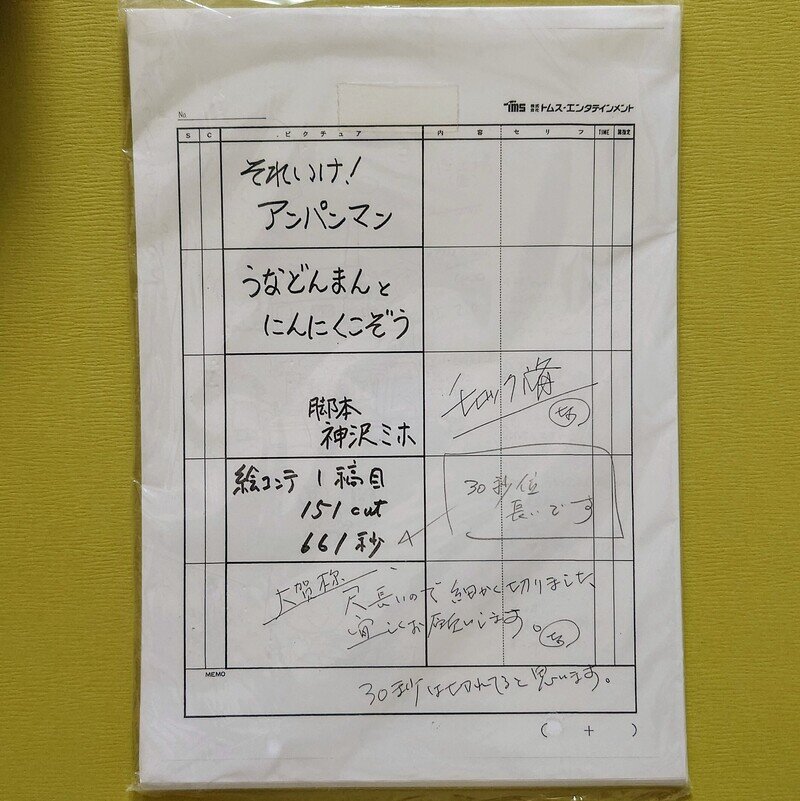 No.
TMS 株式会社 トムス・エンタテインメント
S C ピクチュア 内容 セリフ TIME 兼指定
それいけ!
アンパンマン
うなどんまんと
にんにくこぞう
脚本
神沢ミホ
チェック済
絵コンテ 1稿目
151cut
661秒
30秒位
長いです
大賀様
尺長いので細かく切りました、
宜しくお願いします。
MEMO
30秒は切れてると思います。
( + )